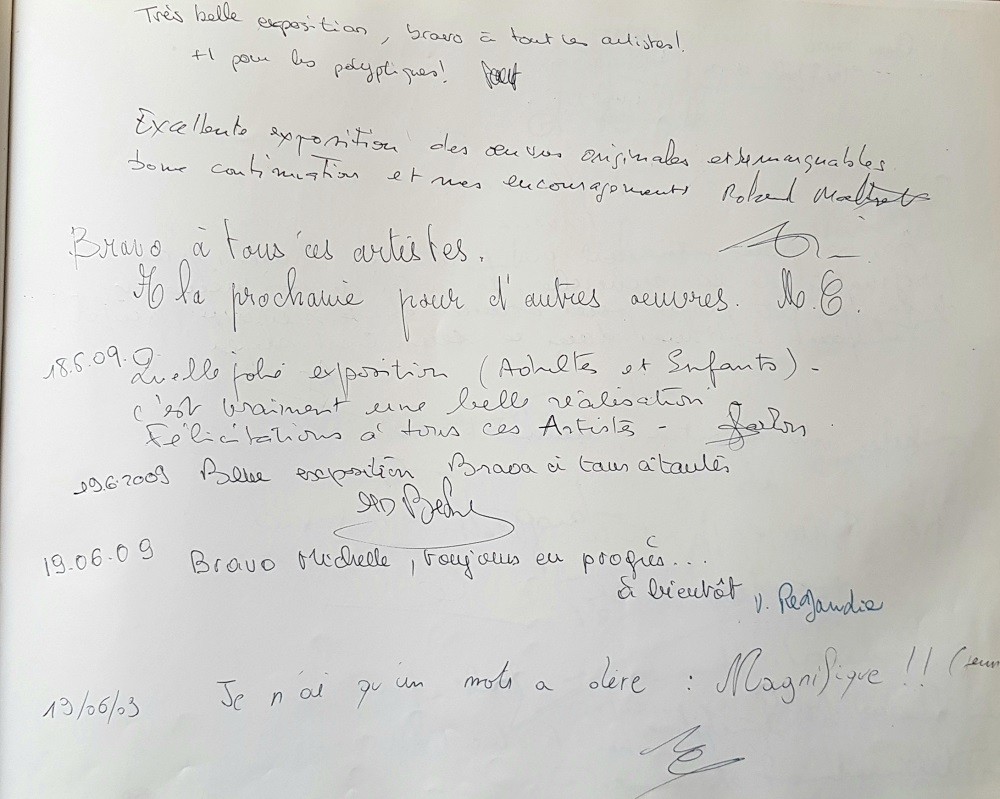 Très belle exposition, bravo à tout les artistes!
+1 pour les polyptiques!
Excellente exposition des œuvres originales et remarquables
bonne continuation et mes encouragements Roland
Bravo à tous ces artistes.
A la prochaine pour d'autres oeuvres. M.C.
18.6.09. Quelle jolie exposition (Adultes et Enfants) -
c'est vraiment une belle réalisation
Félicitations à tous ces Artistes -
19.6.2009 Belle exposition Bravo à tous à toutes
19.06.09 Bravo Michelle, toujours en progrès...
à bientôt V.
19/06/09 Je n'ai qu'un mots a dire : Magnifique !!